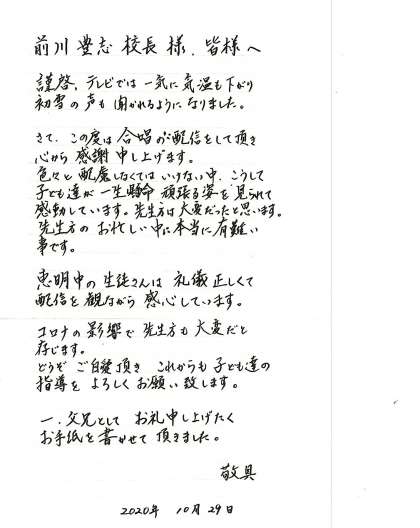 前川 豊志 校長 様、皆様へ
謹啓、テレビでは 一気に 気温も 下がり
初雪の声も 聞かれるように なりました。
さて、この度は 合唱の配信をして頂き
心から 感謝 申し上げます。
色々と 配慮しなくては いけない中、こうして
子ども達が 一生懸命 頑張る姿を 見られて
感動しています。先生方は大変だったと思います。
先生方の お忙しい中に 本当に 有難い
事です。
恵明中の 生徒さんは 礼儀正しくて
配信を 観ながら 感心しています。
コロナの 影響で 先生方も 大変だと
存じます。
どうぞ ご自愛頂き これからも 子ども達の
指導を よろしく お願い 致します。
一、父兄として お礼申し上げたく
お手紙を 書かせて 頂きました。
敬具
2020年 10月29日